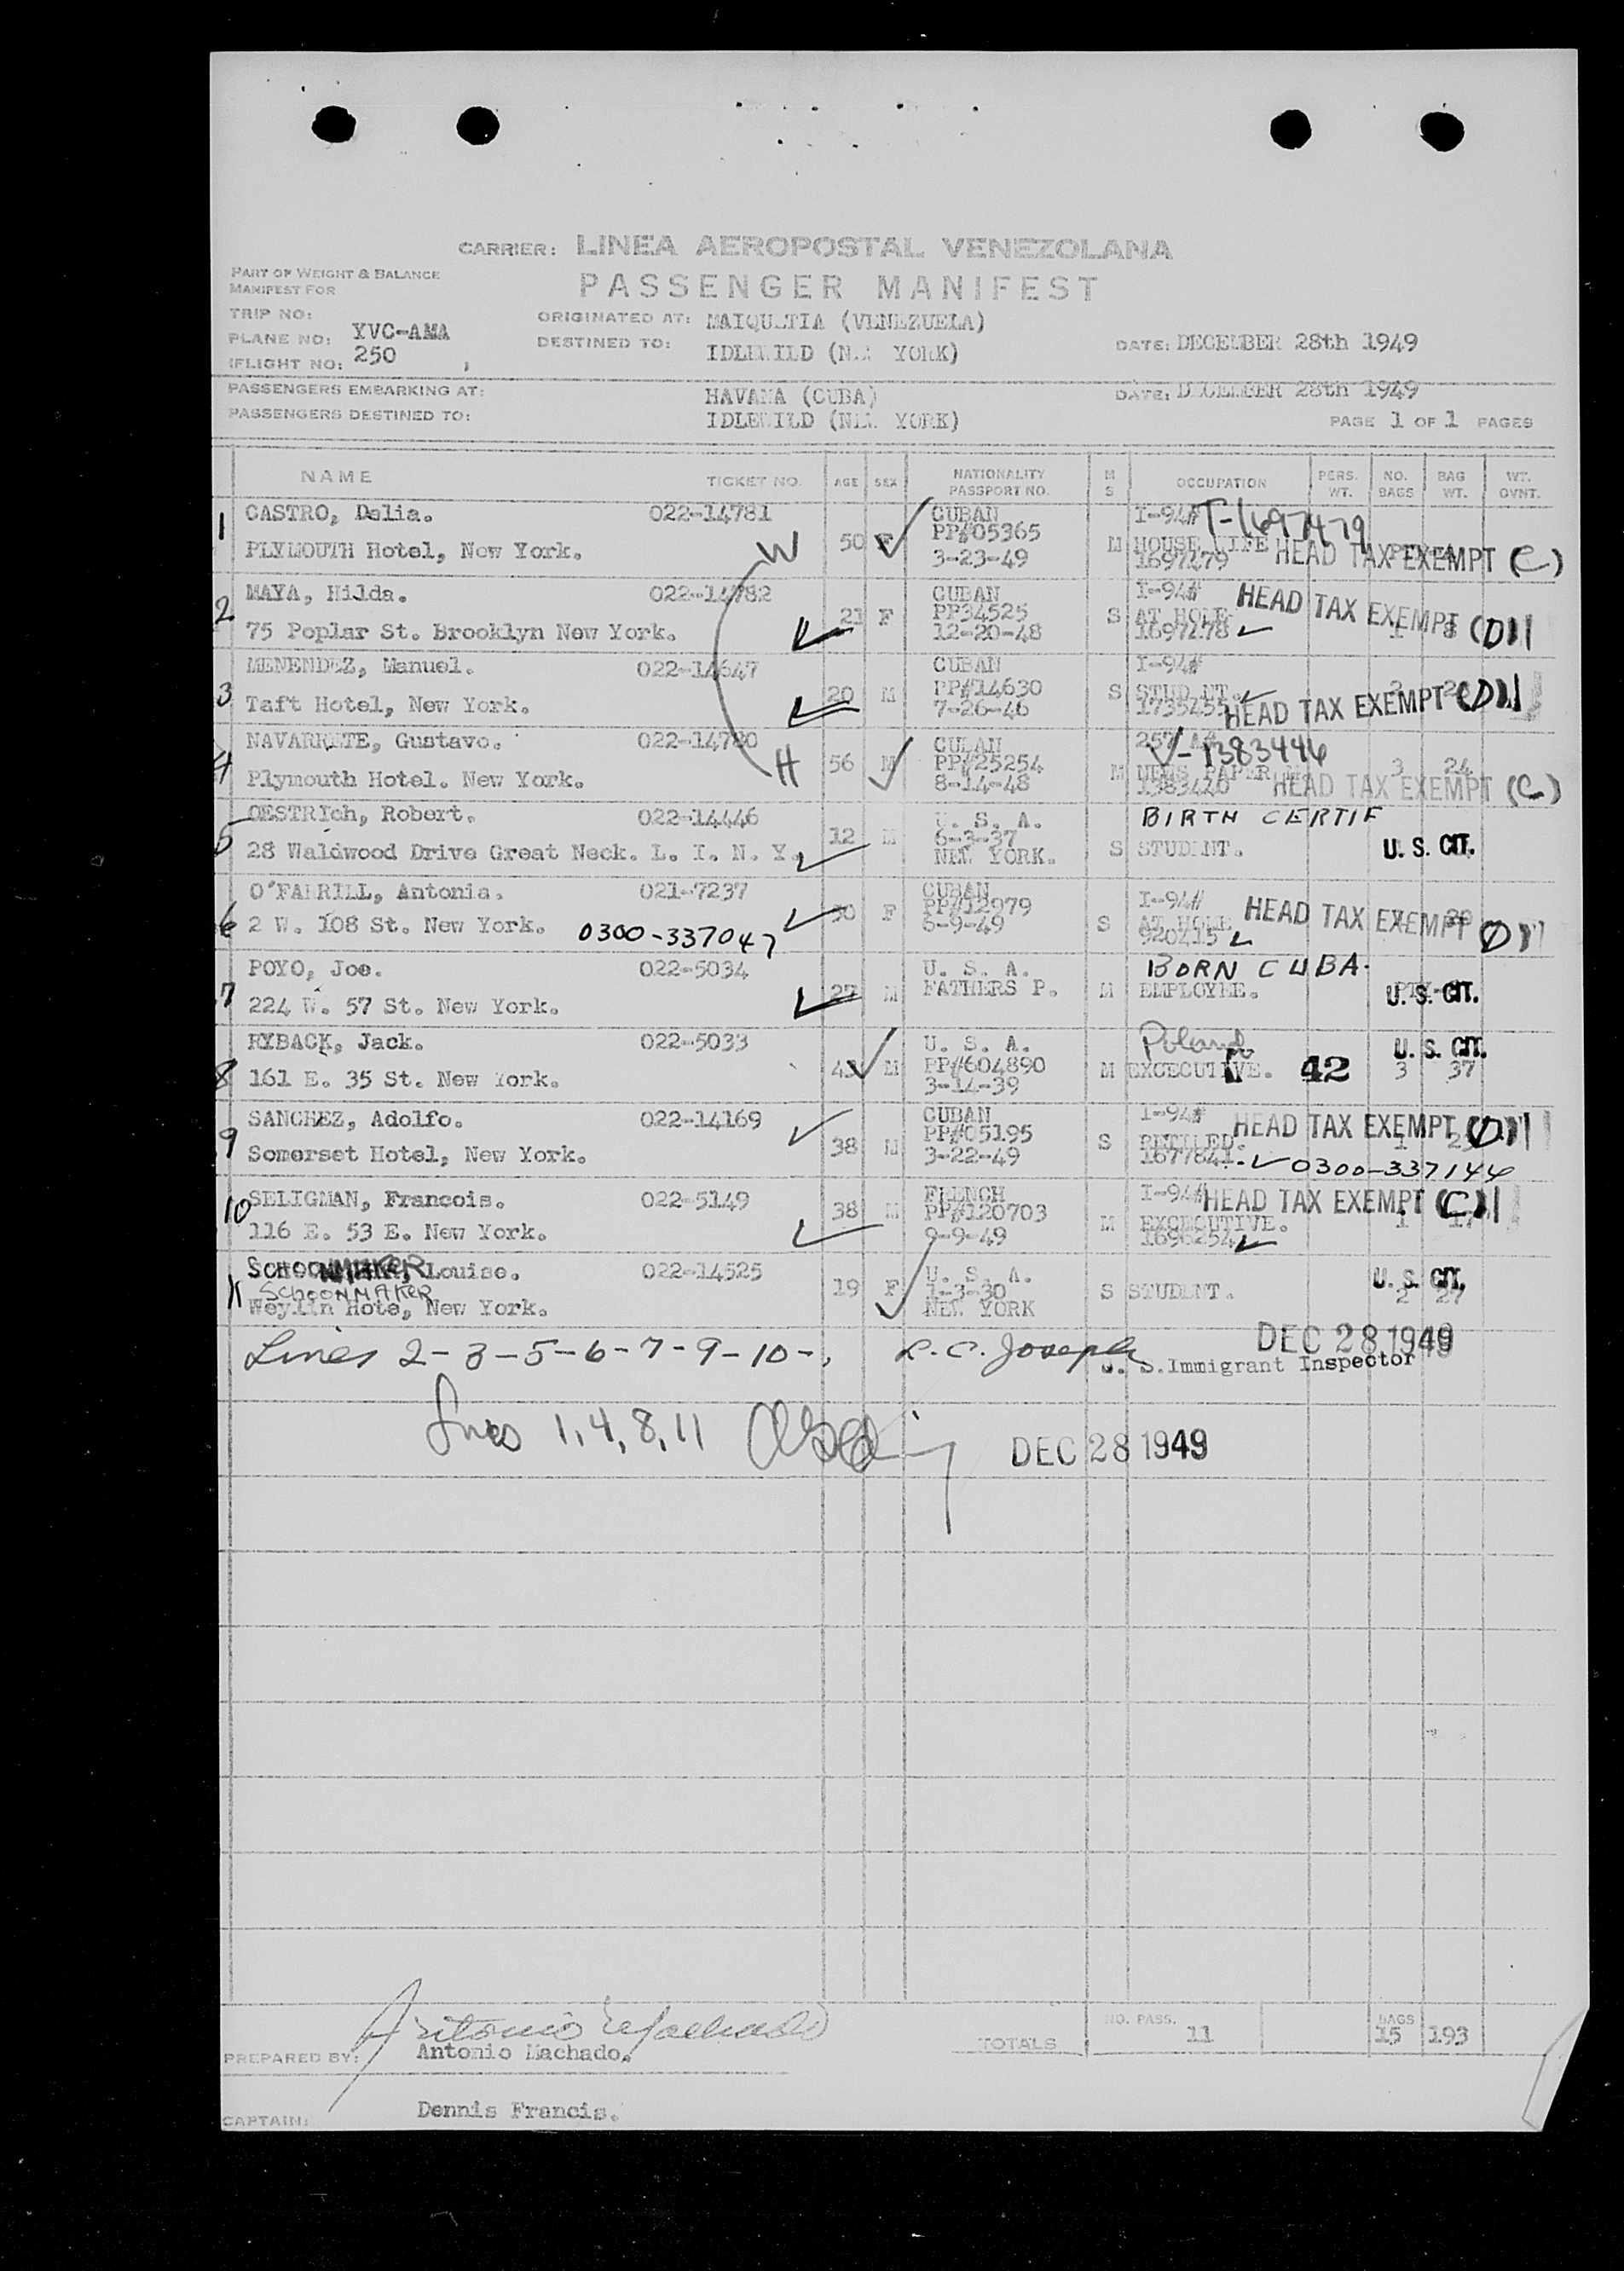 CARRIER: LINEA AEROPOSTAL VENEZOLANA
PART OF WEIGHT & BALANCE
MANIFEST FOR
PASSENGER MANIFEST
TRIP NO:
ORIGINATED AT: MAIQUETIA (VENEZUELA)
PLANE NO: YVC-AMA
DESTINED TO: IDLEWILD (NEW YORK)
DATE: DECEMBER 28th 1949
FLIGHT NO: 250
PASSENGERS EMBARKING AT: HAVANA (CUBA) DATE: DECEMBER 28th 1949
PASSENGERS DESTINED TO: IDLEWILD (NEW YORK) PAGE 1 OF 1 PAGES
NAME TICKET NO. AGE SEX NATIONALITY PASSPORT NO. M S OCCUPATION PERS. WT. NO. BAGS BAG WT. WT. OVNT.
1 CASTRO, Delia. 022-14781 CUBAN I-94# T-1697479
PP#05365
PLYMOUTH Hotel, New York. W 50 F 3-23-49 M HOUSE WIFE 1697479 HEAD TAX EXEMPT (C)
2 MAYA, Hilda. 022-14782 CUBAN I-94# HEAD TAX EXEMPT (D)
21 F PP34525 S AT HOME 1 8
75 Poplar St. Brooklyn New York. 12-20-48 1697478
3 MENENDEZ, Manuel. 022-14647 CUBAN I-94#
20 M PP#14630 S STUDENT. 2
Taft Hotel, New York. 7-26-46 1735455 HEAD TAX EXEMPT (D)
4 NAVARRETE, Gustavo. 022-14780 CUBAN V-1383446
H 56 M PP#25254 M NEWS PAPER 3 24
Plymouth Hotel. New York. 8-14-48 HEAD TAX EXEMPT (C)
5 OESTRIch, Robert. 022-14446 U. S. A. BIRTH CERTIF
12 M 6-3-37
28 Waldwood Drive Great Neck. L. I. N. Y. NEW YORK. S STUDENT. U. S. CIT.
6 O'FARRILL, Antonia. 021-7237 CUBAN I-94#
30 F PP#12979 S AT HOME HEAD TAX EXEMPT (D)
2 W. 108 St. New York. 0300-337047 6-9-49 920415
7 POYO, Joe. 022-5034 U. S. A. BORN CUBA.
27 M FATHERS P. M EMPLOYEE. U. S. CIT.
224 W. 57 St. New York.
8 RYBACK, Jack. 022-5033 U. S. A. Poland U. S. CIT.
43 M PP#604890 M EXCECUTIVE. 42 3 37
161 E. 35 St. New York. 3-14-39
9 SANCHEZ, Adolfo. 022-14169 CUBAN I-94# HEAD TAX EXEMPT (D)
38 M PP#05195 S RETIRED. 1
Somerset Hotel, New York. 3-22-49 1677841 0300-337144
10 SELIGMAN, Francois. 022-5149 FRENCH I-94# HEAD TAX EXEMPT (C)
38 M PP#120703 M EXCECUTIVE. 1 17
116 E. 53 E. New York. 9-9-49 1696254
11 SCHOONMAKER, Louise. 022-14525 U. S. A. U. S. CIT.
SCHOONMAKER 19 F 1-3-30 S STUDENT. 2 27
Weylin Hote, New York. NEW YORK
Lines 2-3-5-6-7-9-10-, L. C. Joseph DEC 28 1949
U. S. Immigrant Inspector
Lines 1, 4, 8, 11 DEC 28 1949
Antonio Machado
PREPARED BY: Antonio Machado. TOTALS NO. PASS. 11 BAGS 15 193
CAPTAIN: Dennis Francis.